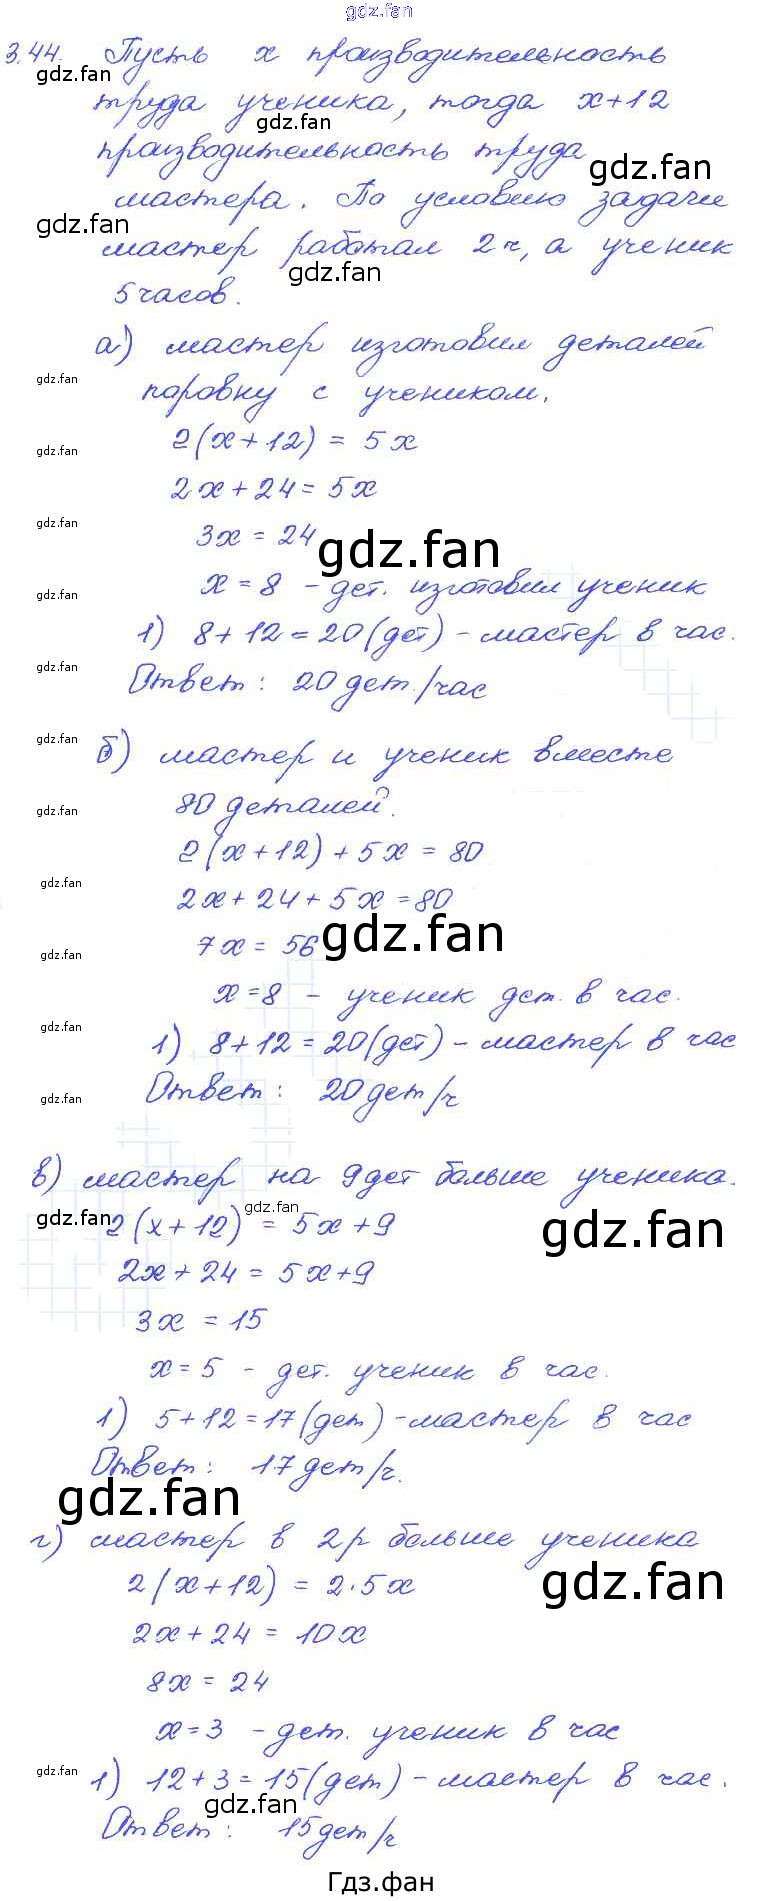 gdz.fan
3.44. Пусть x производительность
gdz.fan
труда ученика, тогда x+12
gdz.fan
производительность труда
gdz.fan
мастера. По условию задачи
gdz.fan
мастер работал 2 ч, а ученик
gdz.fan
5 часов.
а) мастер изготовил деталей
gdz.fan
поровну с учеником.
2(x+12) = 5x
gdz.fan
2x+24=5x
gdz.fan
3x = 24
gdz.fan
x=8 - дет. изготовил ученик
gdz.fan
1) 8+12=20(дет) - мастер в час.
gdz.fan
Ответ: 20 дет./час
gdz.fan
б) мастер и ученик вместе
80 деталей.
gdz.fan
2(x+12)+5x = 80
gdz.fan
2x+24+5x=80
gdz.fan
7x = 56
gdz.fan
x=8 - ученик дет. в час.
gdz.fan
1) 8+12=20(дет) - мастер в час
gdz.fan
Ответ: 20 дет/ч
в) мастер на 9 дет больше ученика.
gdz.fan
gdz.fan
2(x+12) = 5x+9
gdz.fan
2x+24=5x+9
3x = 15
x=5 - дет. ученик в час.
1) 5+12=17(дет) - мастер в час
Ответ: 17 дет/ч.
gdz.fan
г) мастер в 2 р больше ученика
2(x+12) = 2·5x
gdz.fan
2x+24=10x
8x = 24
x=3 - дет. ученик в час
gdz.fan
1) 12+3=15(дет) - мастер в час.
gdz.fan
Ответ: 15 дет/ч
Гдз.фан